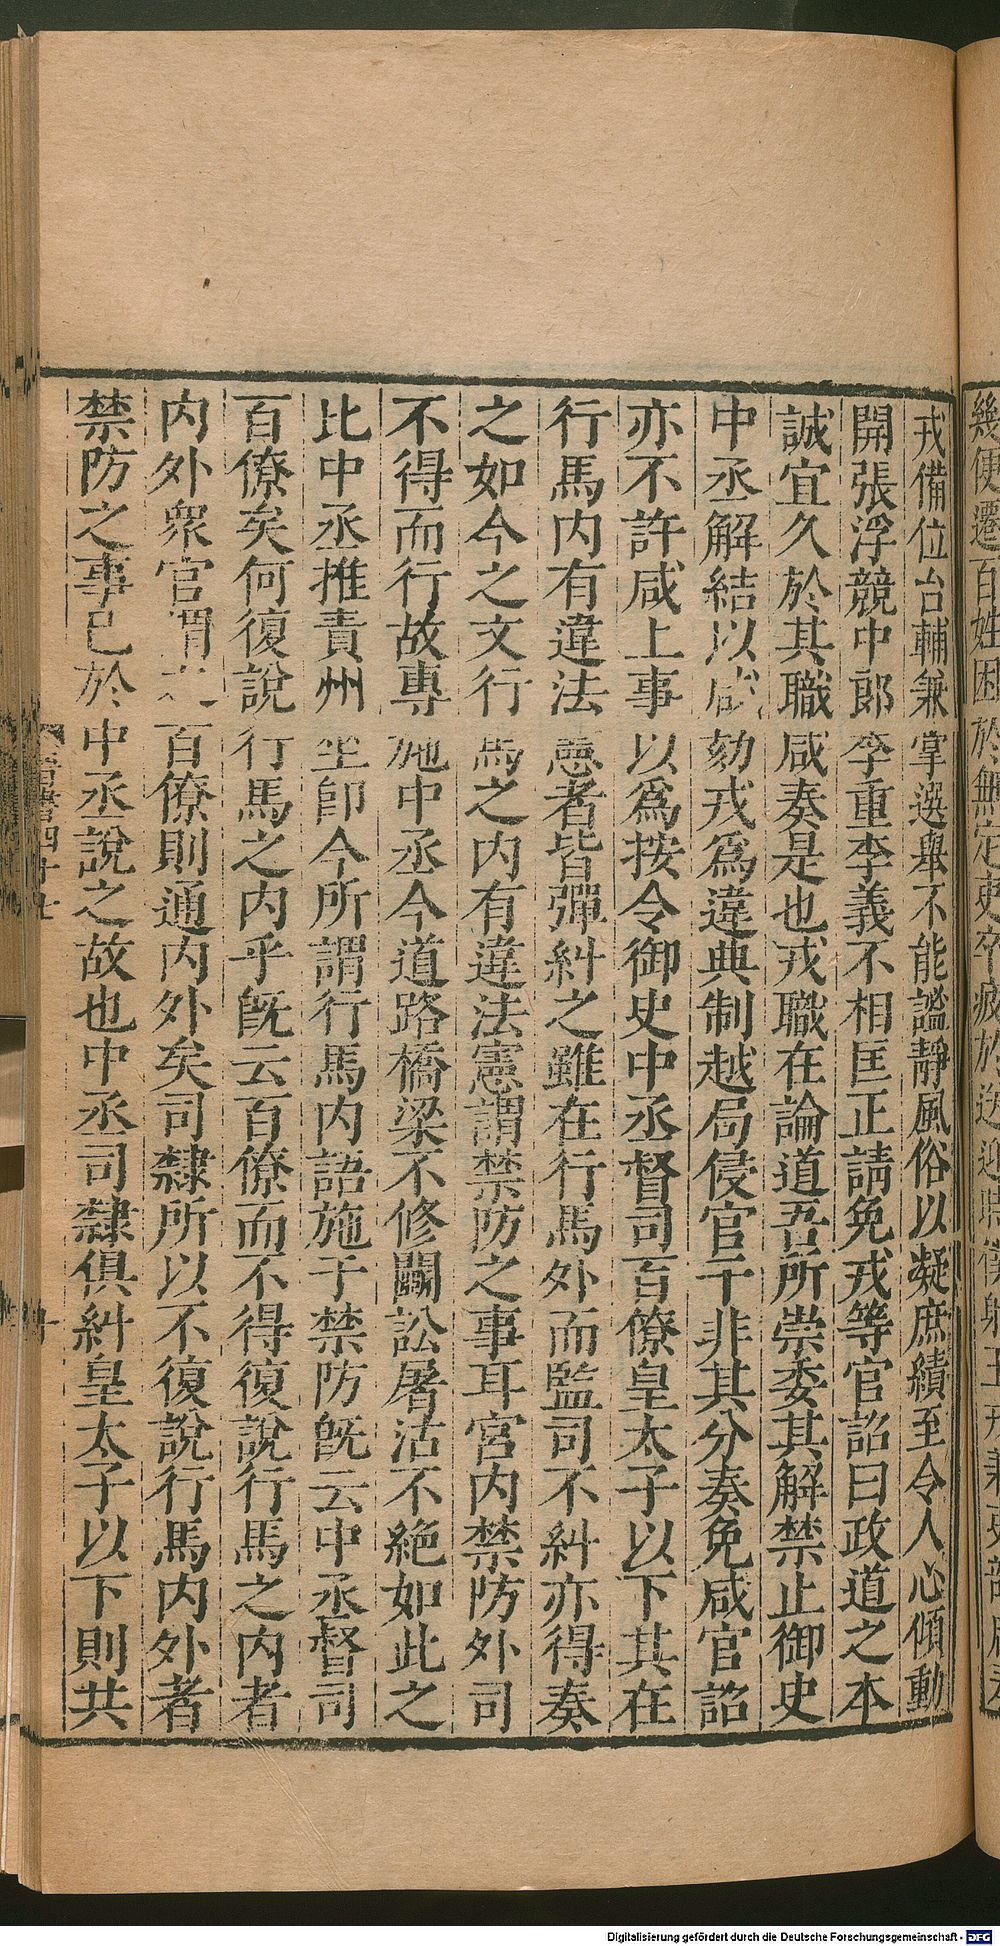 幾便遷百姓困於無定吏卒疲於送迎時僕射王戎兼吏部
戎備位台輔兼掌選舉不能謐靜風俗以凝庶績至令人心傾動
開張浮競中郎李重李義不相匡正請免戎等官詔曰政道之本
誠宜久於其職咸奏是也戎職在論道吾所崇委其解禁止御史
中丞解結以咸劾戎爲違典制越局侵官干非其分奏免咸官詔
亦不許咸上事以爲按令御史中丞督司百僚皇太子以下其在
行馬内有違法憲者皆彈糾之雖在行馬外而監司不糾亦得奏
之如今之文行馬之内有違法憲謂禁防之事耳宮内禁防外司
不得而行故專施中丞今道路橋梁不修鬭訟屠沽不絶如此之
比中丞推責州坐卽今所謂行馬内語施于禁防旣云中丞督司
百僚矣何復說行馬之内乎旣云百僚而不得復說行馬之内者
内外衆官謂之百僚則通内外矣司隸所以不復說行馬内外者
禁防之事已於中丞說之故也中丞司隸俱糾皇太子以下則共
晉書四十七
十
Digitalisierung gefördert durch die Deutsche Forschungsgemeinschaft - DFG